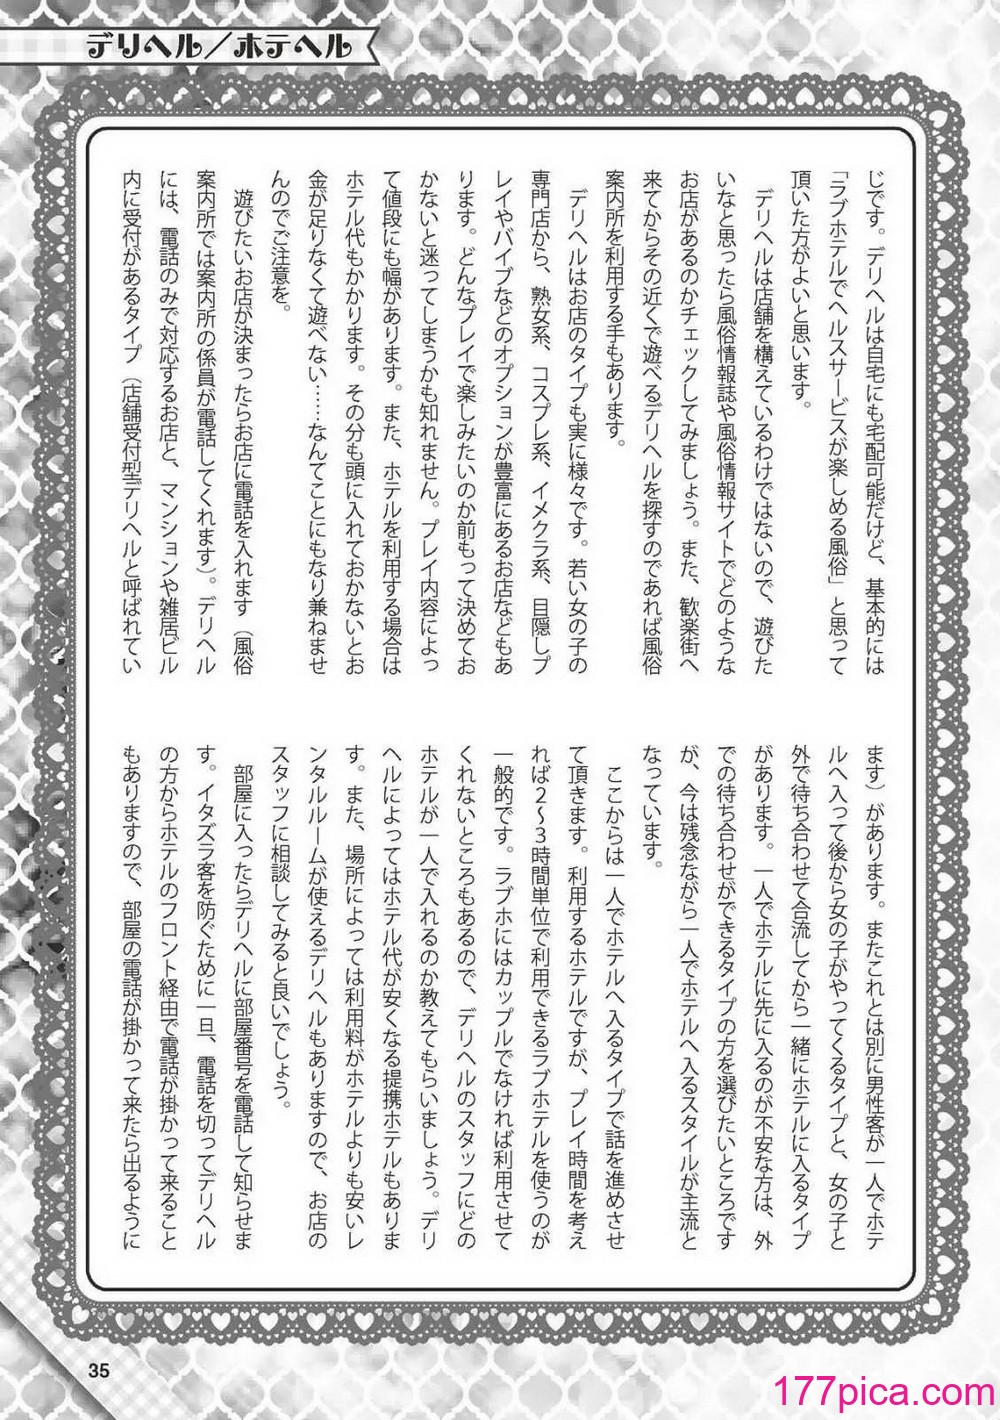 デリヘル／ホテヘル
じです。デリヘルは自宅にも宅配可能だけど、基本的には
「ラブホテルでヘルスサービスが楽しめる風俗」と思って
頂いた方がよいと思います。
デリヘルは店舗を構えているわけではないので、遊びた
いなと思ったら風俗情報誌や風俗情報サイトでどのような
お店があるのかチェックしてみましょう。また、歓楽街へ
来てからその近くで遊べるデリヘルを探すのであれば風俗
案内所を利用する手もあります。
デリヘルはお店のタイプも実に様々です。若い女の子の
専門店から、熟女系、コスプレ系、イメクラ系、目隠しプ
レイやバイブなどのオプションが豊富にあるお店などもあ
ります。どんなプレイで楽しみたいのか前もって決めてお
かないと迷ってしまうかも知れません。プレイ内容によっ
て値段にも幅があります。また、ホテルを利用する場合は
ホテル代もかかります。その分も頭に入れておかないとお
金が足りなくて遊べない……なんてことにもなり兼ねませ
んのでご注意を。
遊びたいお店が決まったらお店に電話を入れます（風俗
案内所では案内所の係員が電話してくれます）。デリヘル
には、電話のみで対応するお店と、マンションや雑居ビル
内に受付があるタイプ（店舗受付型デリヘルと呼ばれてい
ます）があります。またこれとは別に男性客が一人でホテ
ルへ入って後から女の子がやってくるタイプと、女の子と
外で待ち合わせて合流してから一緒にホテルに入るタイプ
があります。一人でホテルに先に入るのが不安な方は、外
での待ち合わせができるタイプの方を選びたいところです
が、今は残念ながら一人でホテルへ入るスタイルが主流と
なっています。
ここからは一人でホテルへ入るタイプで話を進めさせ
て頂きます。利用するホテルですが、プレイ時間を考え
れば２～３時間単位で利用できるラブホテルを使うのが
一般的です。ラブホにはカップルでなければ利用させて
くれないところもあるので、デリヘルのスタッフにどの
ホテルが一人で入れるのか教えてもらいましょう。デリ
ヘルによってはホテル代が安くなる提携ホテルもありま
す。また、場所によっては利用料がホテルよりも安いレ
ンタルルームが使えるデリヘルもありますので、お店の
スタッフに相談してみると良いでしょう。
部屋に入ったらデリヘルに部屋番号を電話して知らせま
す。イタズラ客を防ぐために一旦、電話を切ってデリヘル
の方からホテルのフロント経由で電話が掛かって来ること
もありますので、部屋の電話が掛かって来たら出るように
35
177pica.com